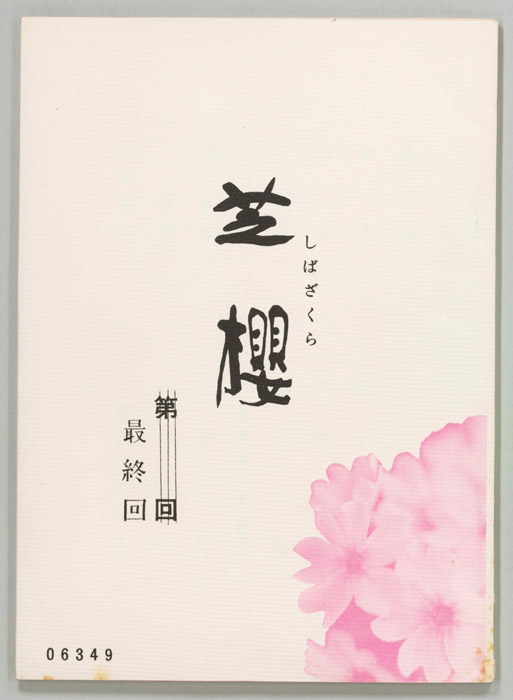 芝櫻
しばざくら
第 回
最終回
06349